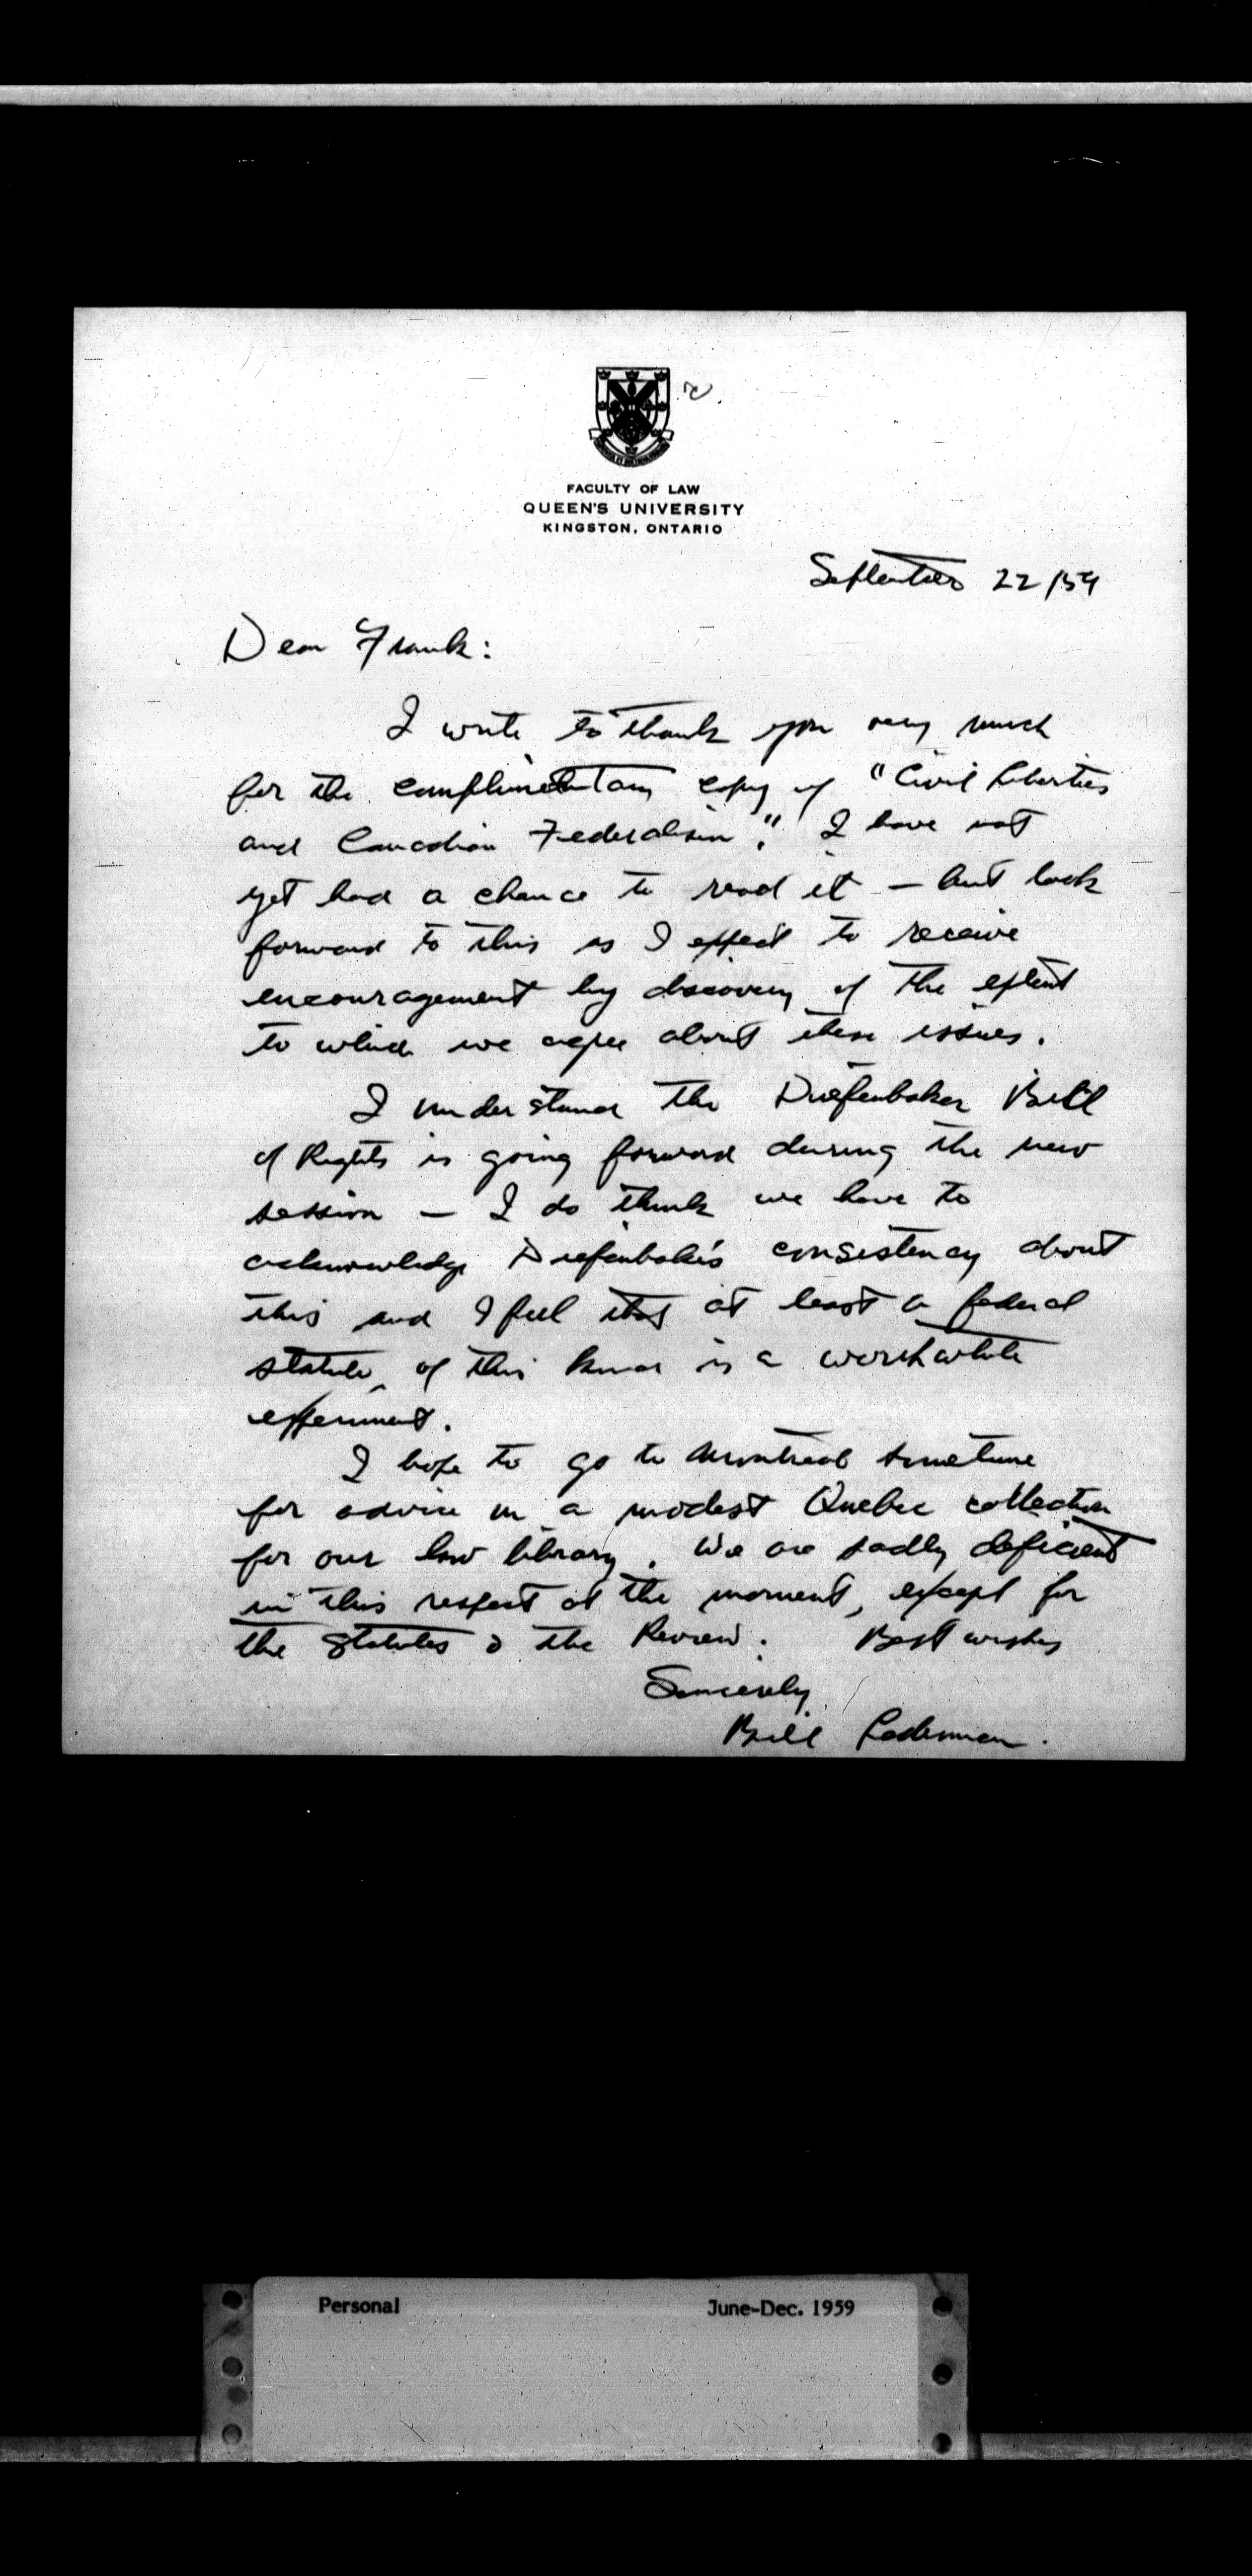 FACULTY OF LAW
QUEEN'S UNIVERSITY
KINGSTON, ONTARIO
September 22/59
Dear Frank:
I write to thank you very much
for the complimentary copy of "Civil Liberties
and Canadian Federalism". I have not
yet had a chance to read it – but look
forward to this as I expect to receive
encouragement by discovery of the extent
to which we agree about these issues.
I understand the Diefenbaker Bill
of Rights is going forward during the new
session – I do think we have to
acknowledge Diefenbaker's consistency about
this and I feel that at least a federal
statute of this kind is a worthwhile
experiment.
I hope to go to Montreal sometime
for advice in a modest Quebec collection
for our law library. We are sadly deficient
in this respect at the moment, except for
the statutes & the Review. Best wishes
Sincerely
Bill Lederman.
Personal June-Dec. 1959